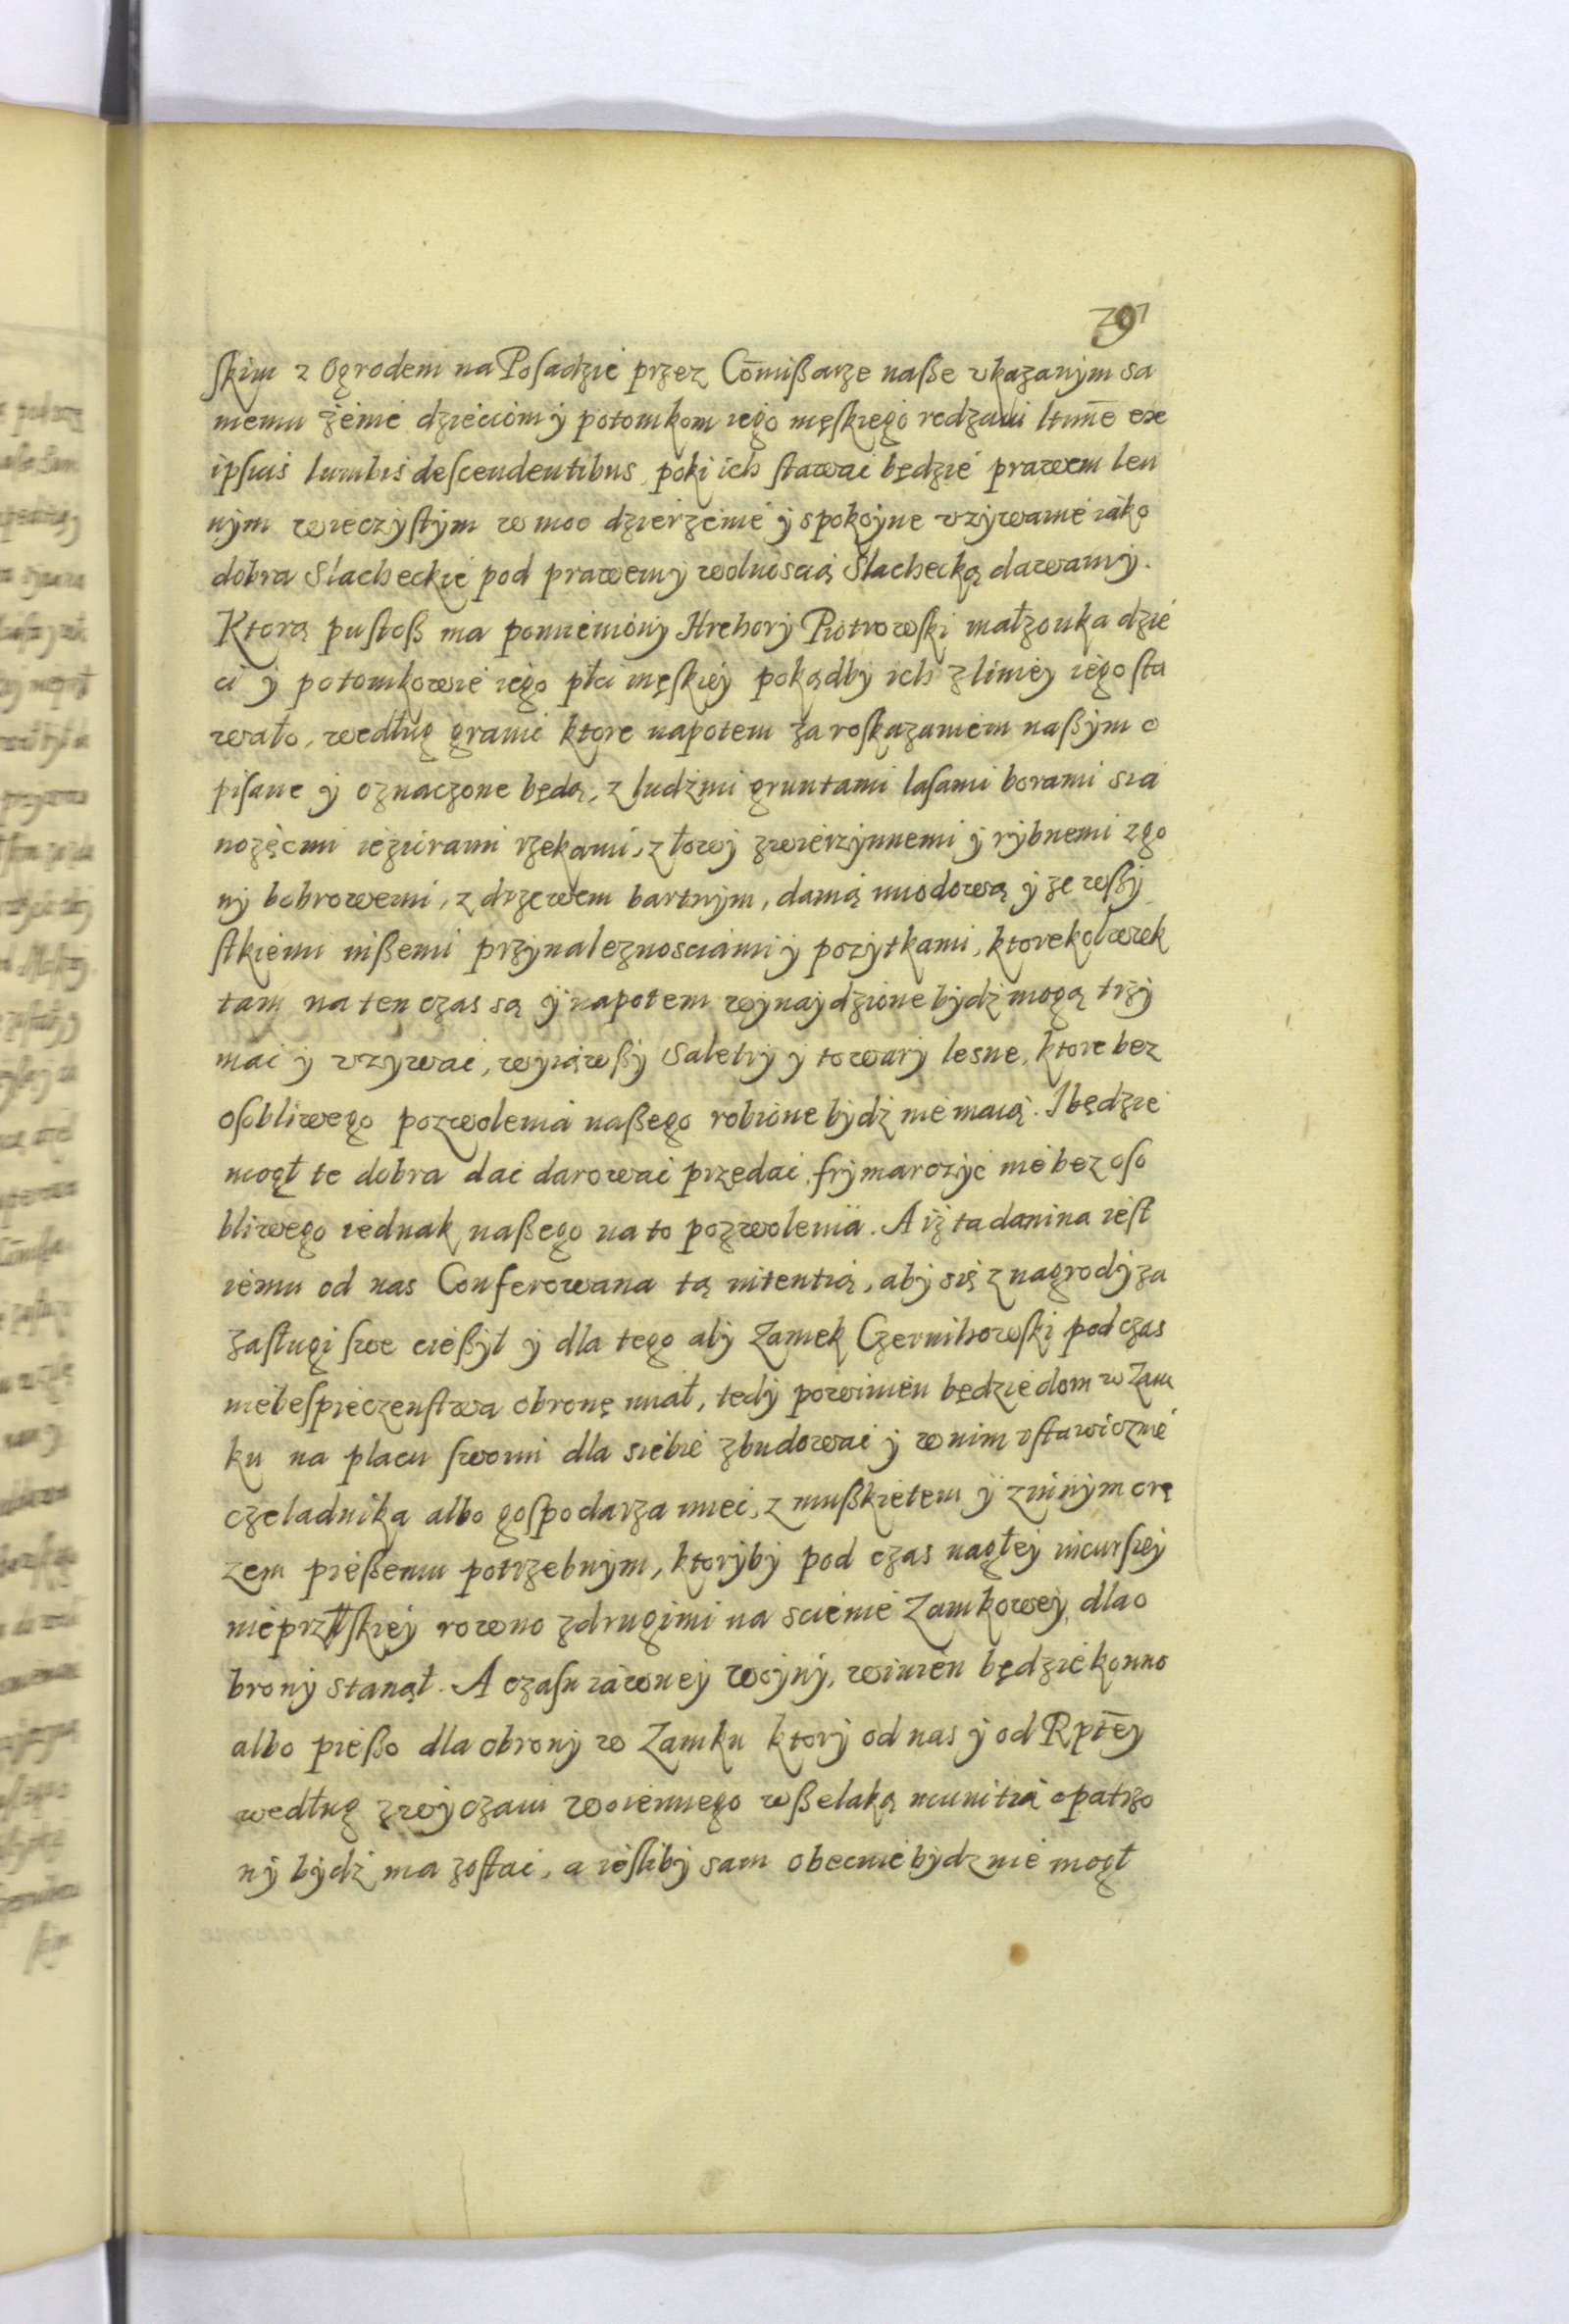 297
skim z Ogrodem na Posadzie przez Com̄ißarze naße vkazanym sa
memu żenie dzieciom y potomkom iego męskiego rodzaiu ltim̄e ex
ipsius lumbis descendentibus poki ich stawać będzie prawem len
nym wieczystym w moc dzierżenie y spokoyne vżywanie iako
dobra Slacheckie pod prawem y wolnoscią Slachecką dawamy.
Ktorą pustoß ma pomieniony Hrehory Piotrowski małzonka dzie
ci y potomkowie iego płci męskiey pokądby ich z liniey iego sta
wało, według granic ktore napotem za roskazaniem naßym o
pisane y oznaczone będą, z ludźmi gruntami lasami borami sia
nożęćmi ieziorami rzekami, z łowy zwierzynnemi y rybnemi zgo
ny bobrowemi, z drzewem bartnym, danią miodową y ze wßy
stkiemi inßemi przynaleznosciami y pozytkami, ktorekolwiek
tam na ten czas są y napotem wynaydzione bydź mogą trzy
mać y vzywać, wyiąwßy Saletry y towary lesne, ktore bez
osobliwego pozwolenia naßego robione bydź nie maią. I będzie
mogł te dobra dać darować przedać, frymarczyć nie bez oso
bliwego iednak naßego na to pozwolenia. A iż ta danina iest
iemu od nas Conferowana tą intentią, aby się z nagrody za
zasługi swe cießył y dla tego aby Zamek Czernihowski pod czas
niebespieczenstwa obronę miał, tedy powinien będzie dom w Zam
ku na placu swoim dla siebie zbudować y w nim vstawicznie
czeladnika albo gospodarza mieć, z mußkietem y z innym orę
zem pießemu potrzebnym, ktoryby pod czas nagłey incursiey
nieprzłskiey rowno z drugimi na scienie Zamkowey dla o
brony stanął. A czasu iawney Woyny, winien będzie konno
albo pießo dla obrony w Zamku ktory od nas y od Rpt̄ey
według zwyczaiu Woiennego wßelaką munitią opatrzo
ny bydź ma zostać, a iesliby sam obecnie bydz nie mogł